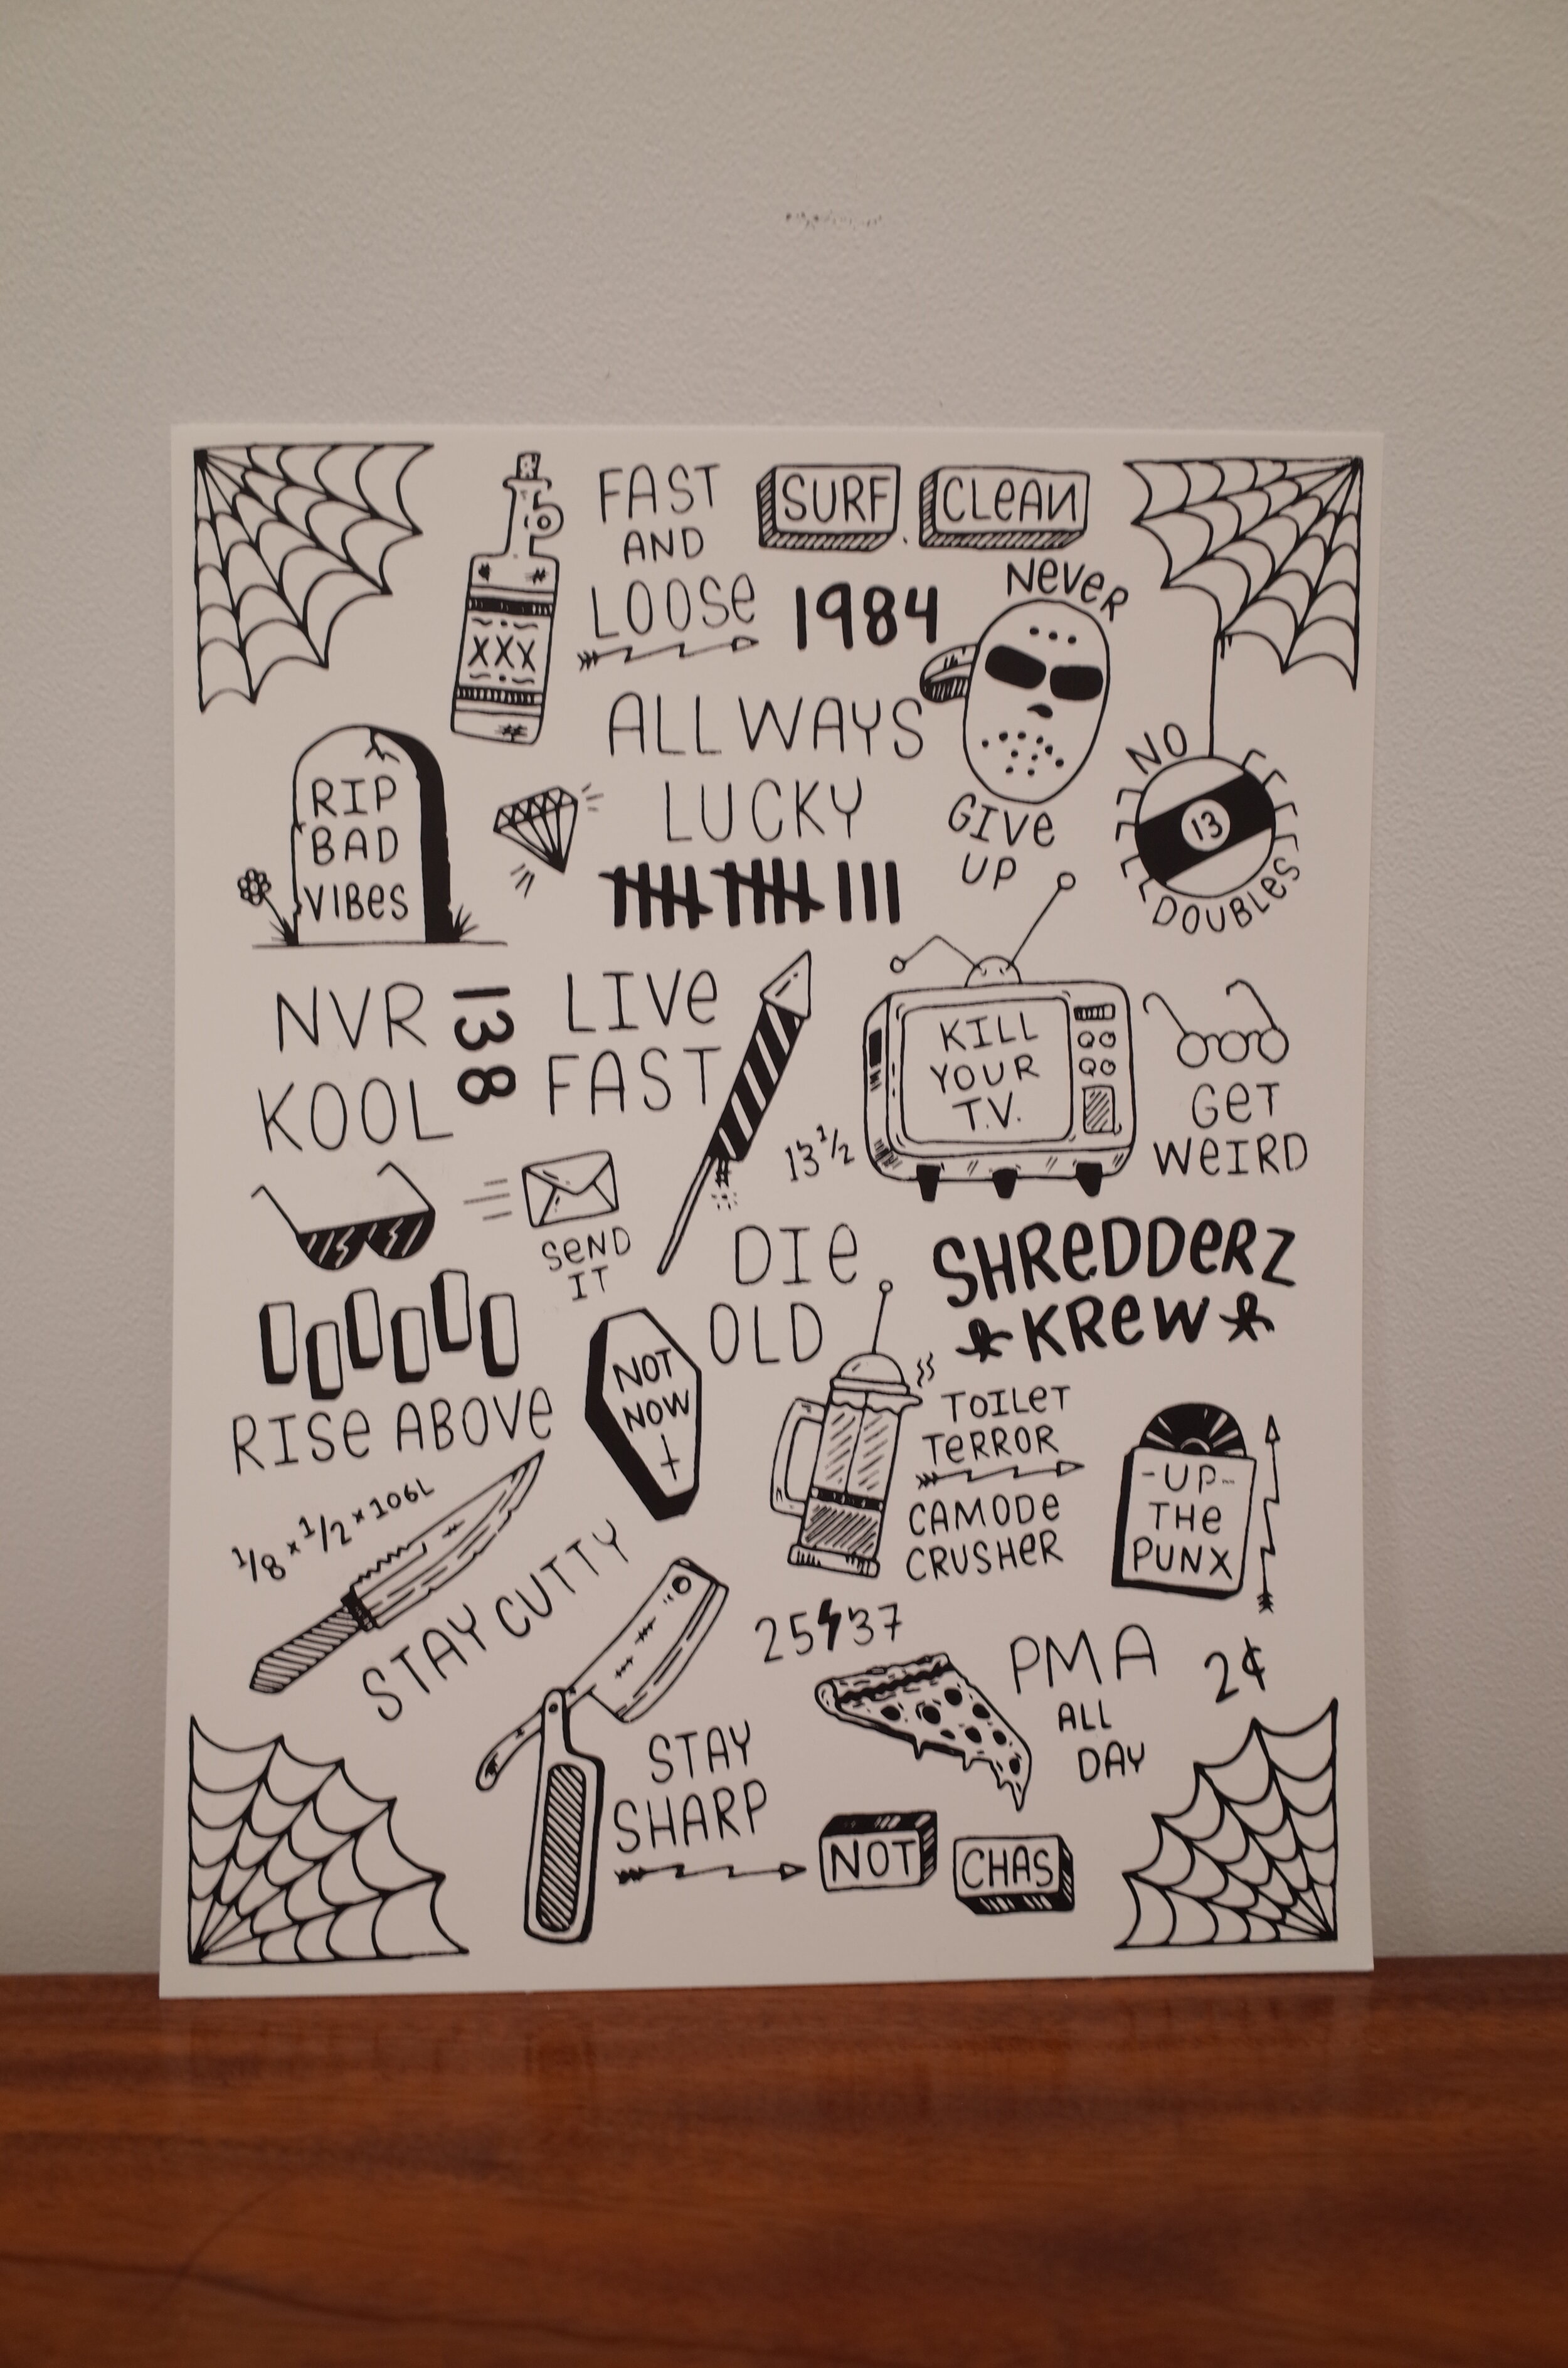 FAST
AND
LOOSe
SURF
CLeAN
XXX
1984
NeVeR
GIVe
UP
ALLWAYS
LUCKY
RIP
BAD
VIBeS
NO
13
DOUBLeS
NVR
KOOL
138
LIVe
FAST
KILL
YOUR
T.V.
GeT
WeIRD
13 1/2
SeND
IT
DIe
OLD
SHReDDeRZ
KReW
RISe ABOVe
NOT
NOW
TOILeT
TeRROR
CAMODe
CRUSHeR
-UP-
THe
PUNX
1/8 x 1/2 x 106L
STAY CUTTY
25 37
PMA
ALL
DAY
2¢
STAY
SHARP
NOT
CHAS